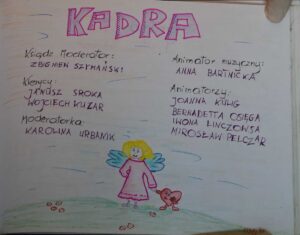 KADRA
Ksiądz Moderator:
ZBIGNIEW SZYMAŃSKI
Klerycy:
JANUSZ SROKA
WOJCIECH KUZAR
Moderatorka:
KAROLINA URBANIK
Animator muzyczny:
ANNA BARTNICKA
Animatorzy:
JOANNA KULIG
BERNADETTA OSIĘGA
IWONA LINCZOWSA
MIROSŁAW PELCZAR